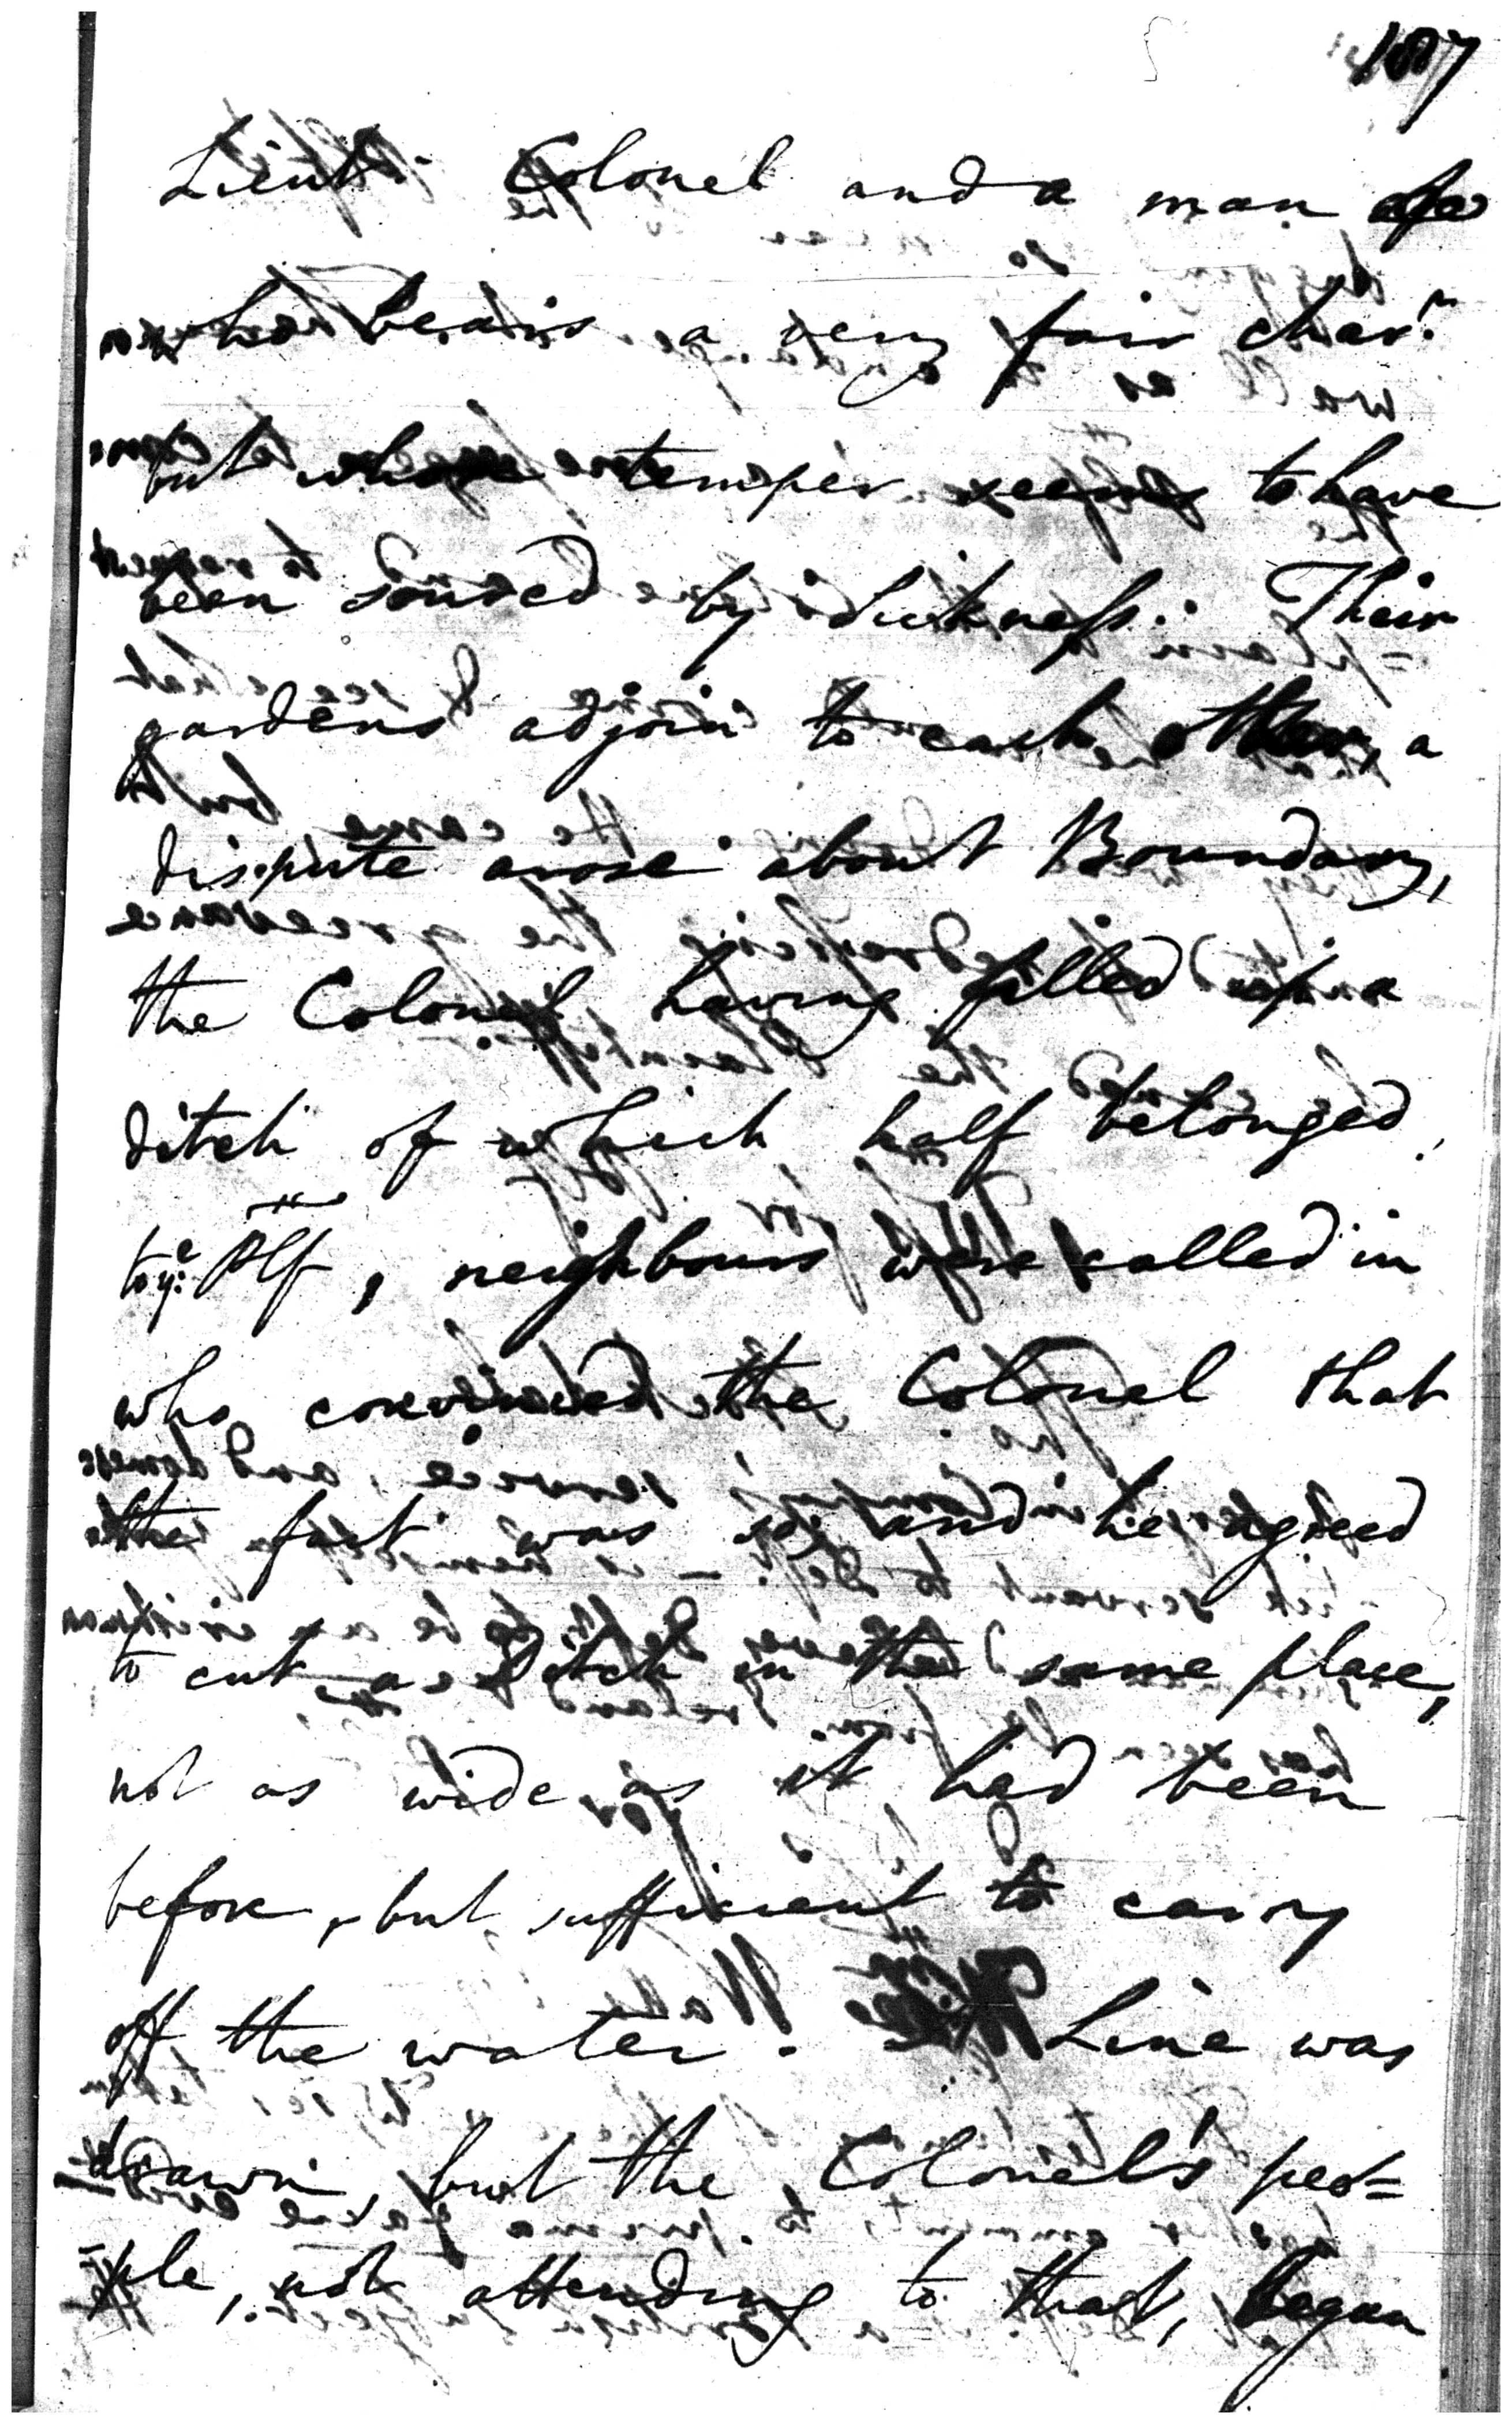 187
Lieut. Colonel and a man of a
who bears a very fair charr.
but whose temper seems to have
been soured by sickness. Their
gardens adjoin to each other, a
dispute arose about Boundary,
the Colonel having filled up a
ditch of which half belonged
to ye. Plf, neighbours were called in
who convinced the Colonel that
the fact was so, and he agreed
to cut a Ditch in the same place,
not as wide as it had been
before, but sufficient to carry
off the water. Line was
drawn, but the Colonel's peo=
=ple, not attending to that, began